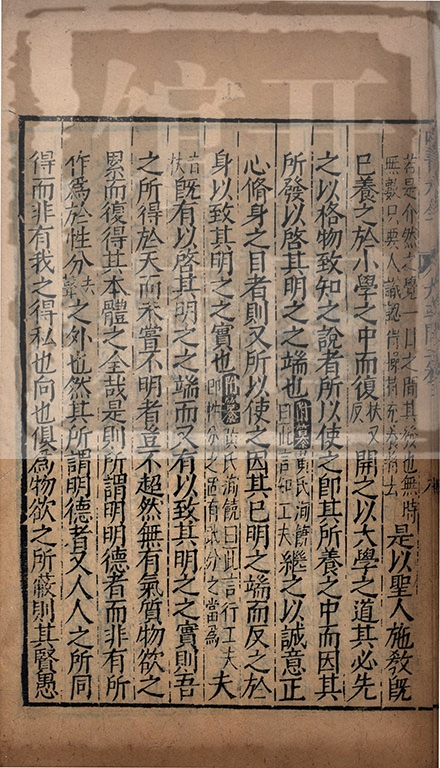 若是介然之覺一日之間其發也無時
無數只要人識認得操持充養將去
是以聖人施教既
已養之於小學之中而復扶又反開之以大學之道其必先
之以格物致知之說者所以使之即其所養之中而因其
所發以啓其明之之端也附纂黃氏洵饒曰此言知工夫繼之以誠意正
心脩身之目者則又所以使之因其已明之端而反之於
身以致其明之之實也附纂黃氏洵饒曰此言行工夫即性分之固有職分之當爲夫音扶
既有以啓其明之之端而又有以致其明之之實則吾
之所得於天而未嘗不明者豈不超然無有氣質物欲之
累而復得其本體之全哉是則所謂明明德者而非有所
作爲於性分去聲之外也然其所謂明德者又人人之所同
得而非有我之得私也向也俱爲物欲之所蔽則其賢愚